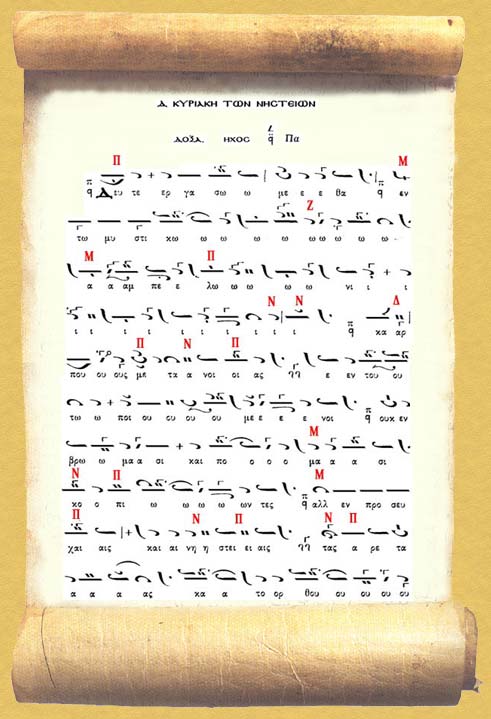 Δ. ΚΥΡΙΑΚΗ ΤΩΝ ΝΗΣΤΕΙΩΝ
ΔΟΞΑ. ΗΧΟΣ Πα
Π Μ
Δευ τε ερ γα σω ω με ε ε θα εν
Ζ
τω μυ στι κω ω ω ω ω ω ω ω ω
Μ Π
α α αμ πε ε λω ω ω ω ω νι ι ι
Ν Ν Δ
ι ι ι ι ι ι ι ι ι ι κα αρ
Π Ν Π
που ου ους με τα α νοι οι ας ε εν του ου
τω ω ποι ου ου ου ου με ε ε ε νοι ουκ εν
Μ
βρω ω μα α σι και πο ο ο ο μα α α σι
Ν Π Μ
κο ο πι ω ω ω ω ων τες αλλ εν προ σευ
Π Ν Π Ν Π
χαι αις και αι νη η στει ει αις τας α ρε τα
α α α ας κα α το ορ θου ου ου ου ου